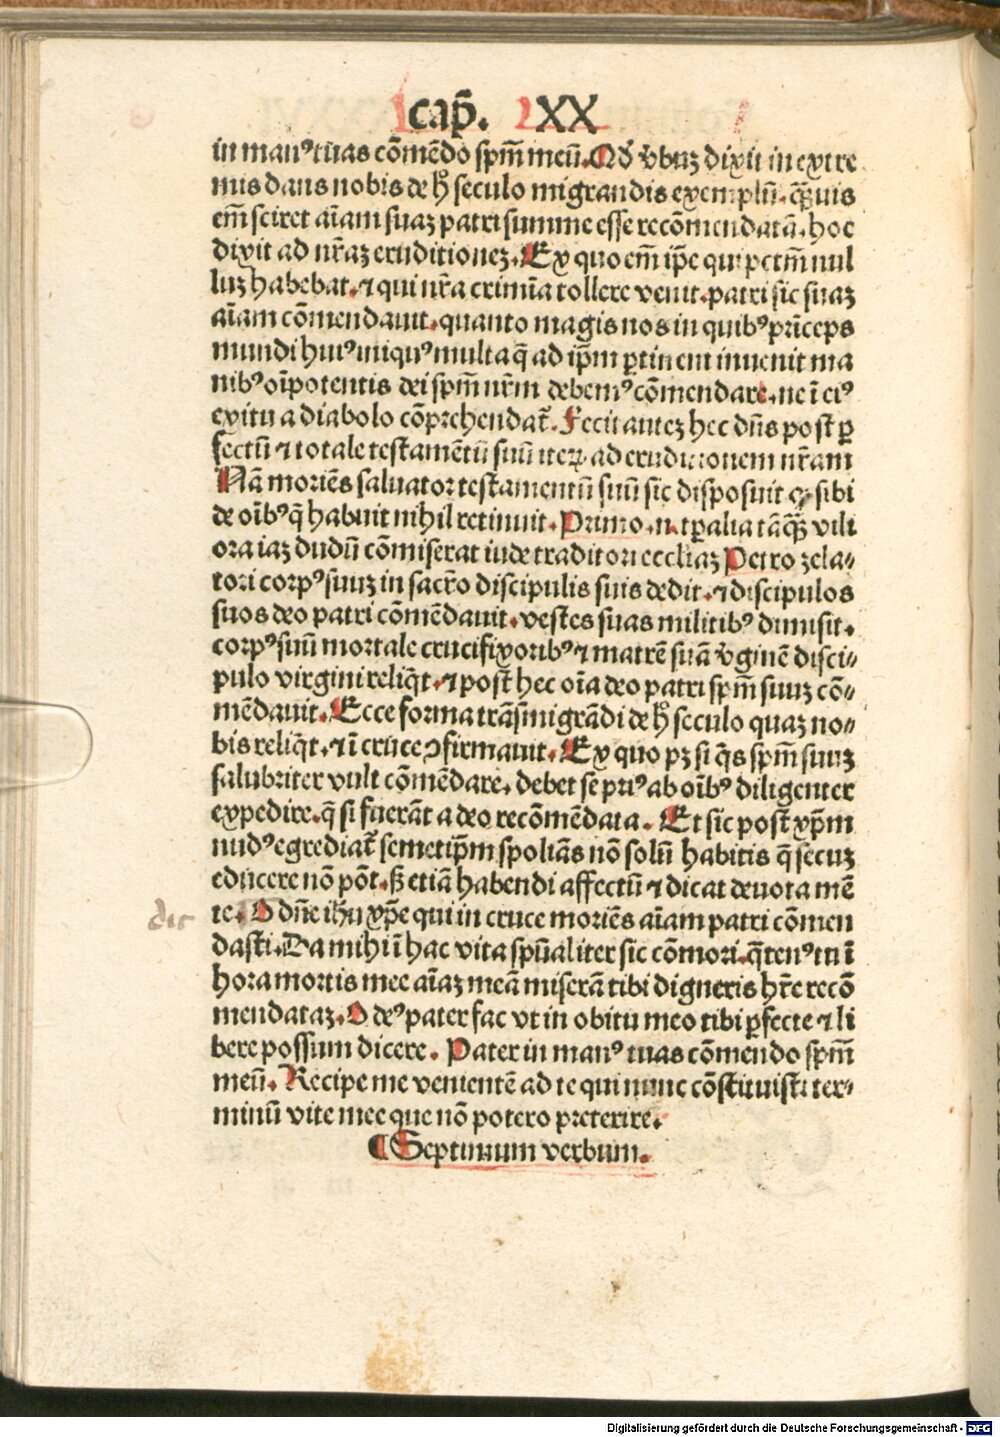 cap̄. XX
in manꝰ tuas cōmēdo sp̄m meū. Qd̛ v̛buꝫ dixit in extre
mus dans nobis de hͦ seculo migrandis exemplū. q̄ꝫuis
em̄ sciret aīam suaꝫ patri summe esse recōmendatā. hoc
dixit ad nr̄aꝫ eruditioneꝫ. Ex quo em̄ ip̄e qui pctm̄ nul
luꝫ habebat. ⁊ qui nr̄a crimīa tollere venit. patri sic suaꝫ
aīam cōmendauit. quanto magis nos in quibꝰ prīceps
mundi huiꝰ iniquꝰ multa q̄ ad ip̄m ꝑtinent inuenit ma
nibꝰ oīpotentis dei sp̄m nr̄m debemꝰ cōmendare. ne ī eiꝰ
exitu a diabolo cōprehendat᷑. Fecit auteꝫ hec dn̄s post ꝑ
fectū ⁊ totale testamētū suū iteꝝ ad eruditionem nr̄am
Nā moriēs saluator testamentū suū sic disposuit ꝙ sibi
de oībꝰ q̄ habuit nihil retinuit. Primo .n. tꝑalia tāq̄ꝫ vili
ora iaꝫ dudū cōmiserat iude traditori eccliaꝫ Petro zela⸗
tori corpꝰ suuꝫ in sacr̄o discipulis suis dedit. ⁊ discipulos
suos deo patri cōmēdauit. vestes suas militibꝰ dimisit.
corpꝰ suū mortale crucifixoribꝰ ⁊ matrē suā v̛ginē disci⸗
pulo virgini reliq̄t. ⁊ post hec oīa deo patri sp̄m suuꝫ cō⸗
mēdauit. Ecce forma trāsmigrādi de hͦ seculo quaꝫ no⸗
bis reliq̄t. ⁊ ī cruce ꝯfirmauit. Ex quo pꝫ si q̄s sp̄m suuꝫ
salubriter vult cōmēdare. debet se priꝰ ab oībꝰ diligenter
expedire. q̄ si fuerāt a deo recōmēdata. Et sic post xp̄m
nudꝰ egrediat᷑ semetip̄m spoliās nō solū habitis q̄ secuꝫ
educere nō pōt. ß etiā habendi affectū ⁊ dicat deuota mē
te. O dn̄e ihū xp̄e qui in cruce moriēs aīam patri cōmen
dasti. Da mihi ī hac vita sp̄ualiter sic cōmori. q̄tenꝰ tu ī
hora mortis mee aīaꝫ meā miserā tibi digneris hr̄e recō
mendataꝫ. O deꝰ pater fac vt in obitu meo tibi ꝑfecte ⁊ li
bere possum dicere. Pater in manꝰ tuas cōmendo sp̄m
meū. Recipe me venientē ad te qui nunc cōstituisti ter⸗
minū vite mee que nō potero preterire.
¶ Septimum verbum.
Digitalisierung gefördert durch die Deutsche Forschungsgemeinschaft - DFG